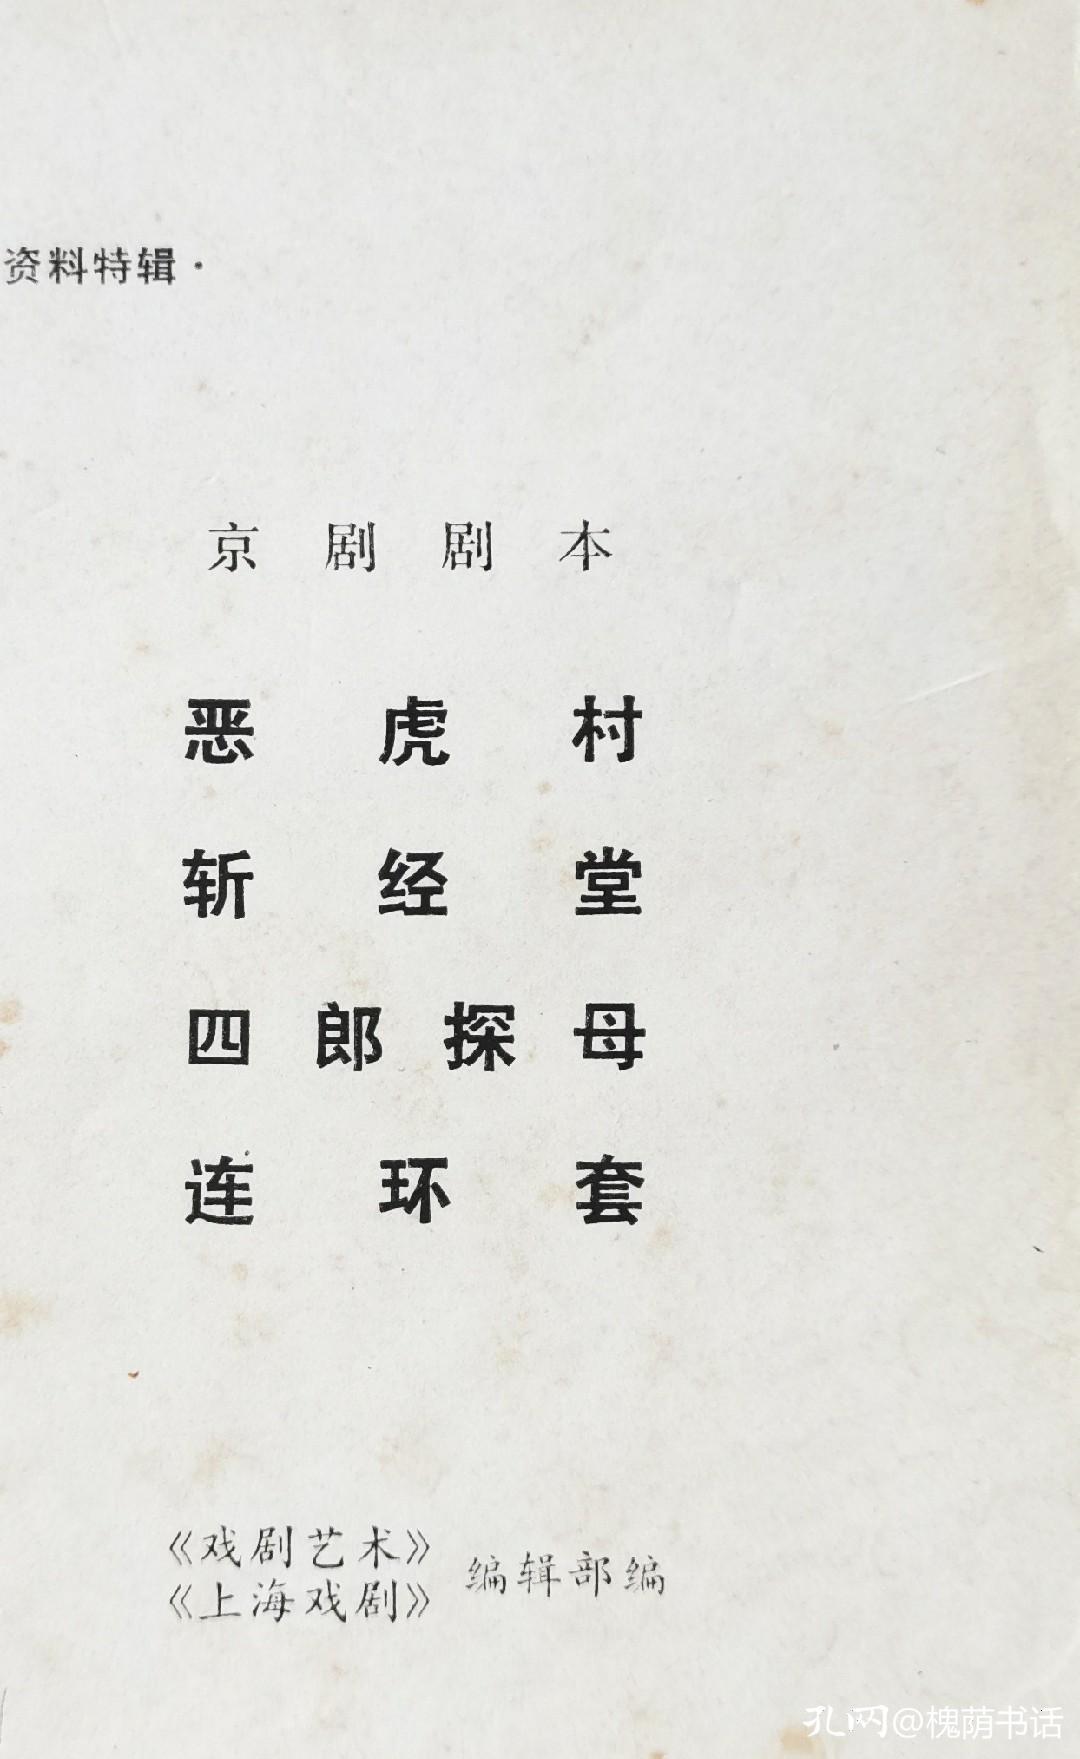 资料特辑·
京剧剧本
恶虎村
斩经堂
四郎探母
连环套
《戏剧艺术》
《上海戏剧》
编辑部编
孔网@槐荫书话